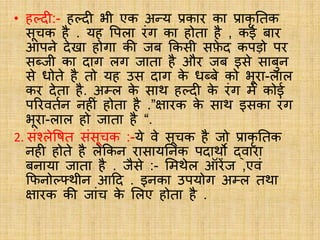 • हल्दी:- हल्दी भी एक अन्य प्रकार का प्राकृतिक
सूचक है . यह पिला रंग का होता है , कई बार
आपने देखा होगा की जब किसी सफ़ेद कपड़ो पर
सब्जी का दाग लग जाता है और जब इसे साबुन
से धोते है तो यह उस दाग के धब्बे को भूरा-लाल
कर देता है. अम्ल के साथ हल्दी के रंग में कोई
परिवर्तन नहीं होता है .”क्षारक के साथ इसका रंग
भूरा-लाल हो जाता है “.
2. संश्लेषित संसूचक :-ये वे सूचक है जो प्राकृतिक
नही होते है लेकिन रासायनिक पदार्थो द्वारा
बनाया जाता है . जैसे :- मिथेल ऑरेंज ,एवं
फिनोल्फ्थीन आदि . इनका उपयोग अम्ल तथा
क्षारक की जांच के लिए होता है .